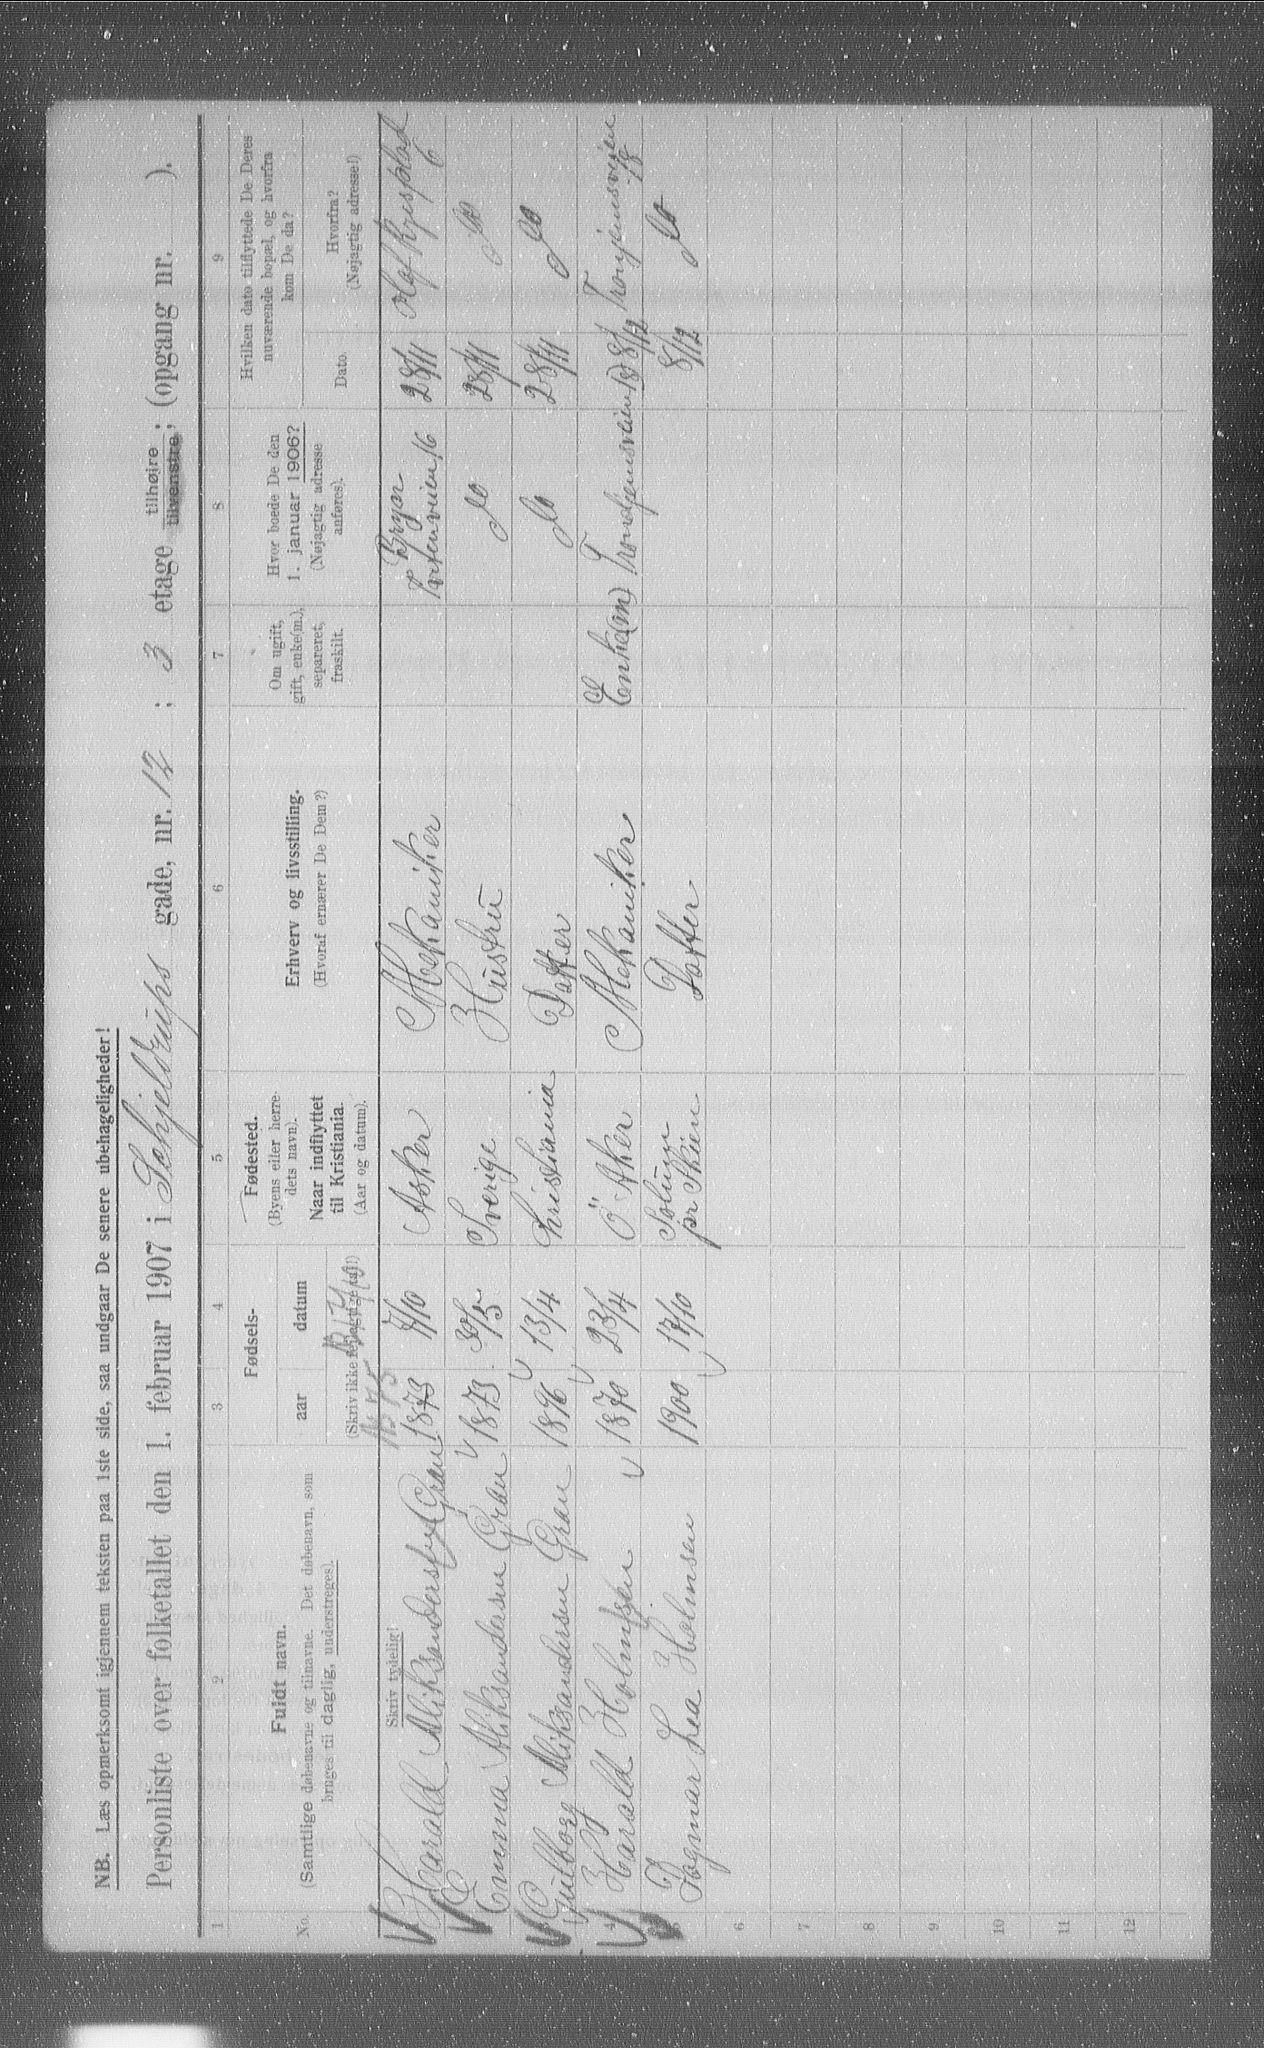 NB. Læs opmerksomt igjennem teksten paa 1ste side, saa undgaar De senere ubehageligheder!
Personliste over folketallet den 1. februar 1907 i Schjeldrups gade, nr. 12 ; 3 etage tilhøire ; (opgang nr. ).
tilvenstre,
1 2 3 4 5 6 7 8 9
No.
Fuldt navn.
(Samtlige døbenavne og tilnavne. Det døbenavn, som
bruges til daglig, understreges).
Skriv tydelig!
Fødsels-
aar datum
(Skriv ikke feilagtige tal!)
Fødested.
(Byens eller herre-
dets navn).
Naar indflyttet
til Kristiania.
(Aar og datum).
Erhverv og livsstilling.
(Hvoraf ernærer De Dem?)
Om ugift,
gift, enke(m.),
separeret,
fraskilt.
Hvor boede De den
1. januar 1906?
(Nøjagtig adresse
anføres).
Hvilken dato tilflyttede De Deres
nuværende bopæl, og hvorfra
kom De da?
Dato.
Hvorfra?
(Nøjagtig adresse!)
1875 17/10
Harald Aliksandersen Gran 1873 7/10 Asker Mekaniker Bryn Tvetenveien 16 28/11 Olaf Kyrsplad 6
Emma Aliksandersen Gran 1873 30/5 Sverige Hustru Do 28/11 Do
Gulborg Aliksandersen Gran 1896 13/4 Kristiania Datter Do 28/11 Do
4 Harald Holmsen 1870 23/4 Ö Aker Mekaniker Enke(m) Trondjemsveien 18 8/12 Tronjemsveien 18
5 Dagmar Lea Holmsen 1900 17/10 Solum pr Skien Datter 8/12 Do
6
7
8
9
10
11
12